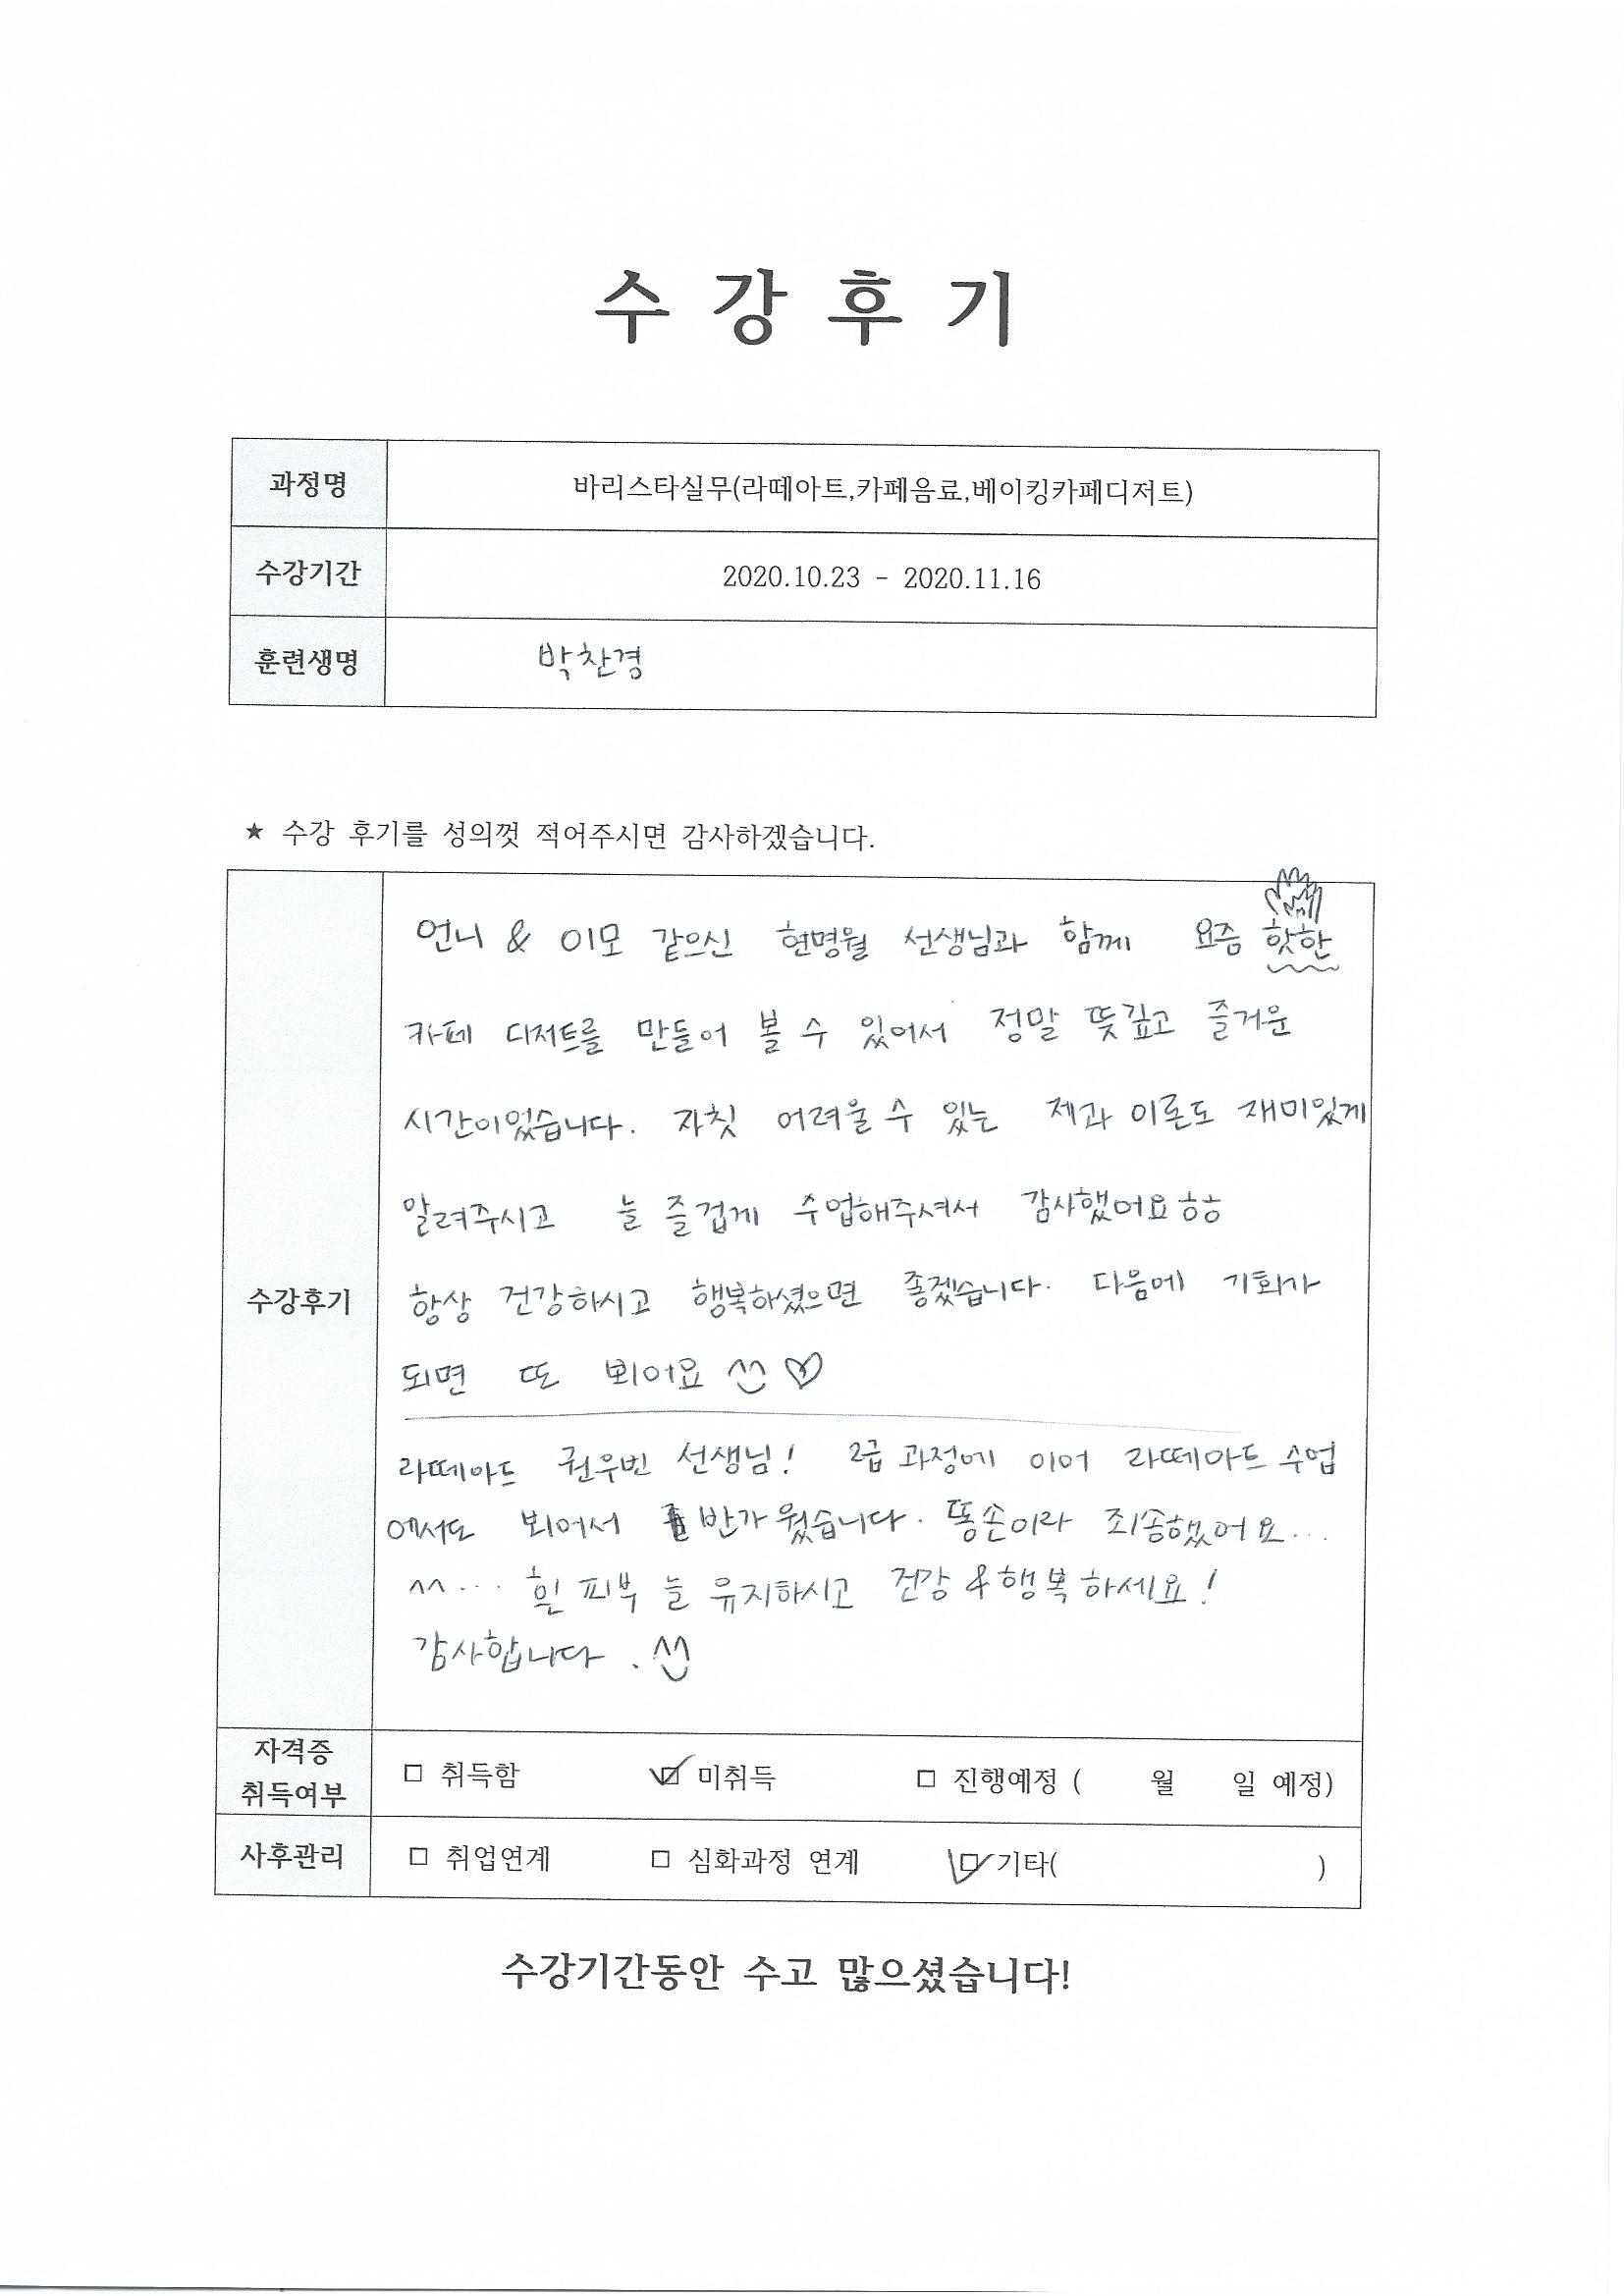 수 강 후 기
과정명 바리스타실무(라떼아트,카페음료,베이킹카페디저트)
수강기간 2020.10.23 - 2020.11.16
훈련생명 박찬경
★ 수강 후기를 성의껏 적어주시면 감사하겠습니다.
언니 & 이모 같으신 현명월 선생님과 함께 요즘 핫한
카페 디저트를 만들어 볼 수 있어서 정말 뜻깊고 즐거운
시간이었습니다. 자칫 어려울 수 있는 제과 이론도 재미있게
알려주시고 늘 즐겁게 수업해주셔서 감사했어요ㅎㅎ
수강후기
항상 건강하시고 행복하셨으면 좋겠습니다. 다음에 기회가
되면 또 뵈어요 ^^ ♡
라떼아트 권우빈 선생님! 2급 과정에 이어 라떼아트 수업
에서도 뵈어서 반가웠습니다. 똥손이라 죄송했어요...
^^... 흰 피부 늘 유지하시고 건강 & 행복하세요!
감사합니다. ^^
자격증
취득여부 □ 취득함 ☑ 미취득 □ 진행예정 ( 월 일 예정)
사후관리 □ 취업연계 □ 심화과정 연계 ☑ 기타( )
수강기간동안 수고 많으셨습니다!